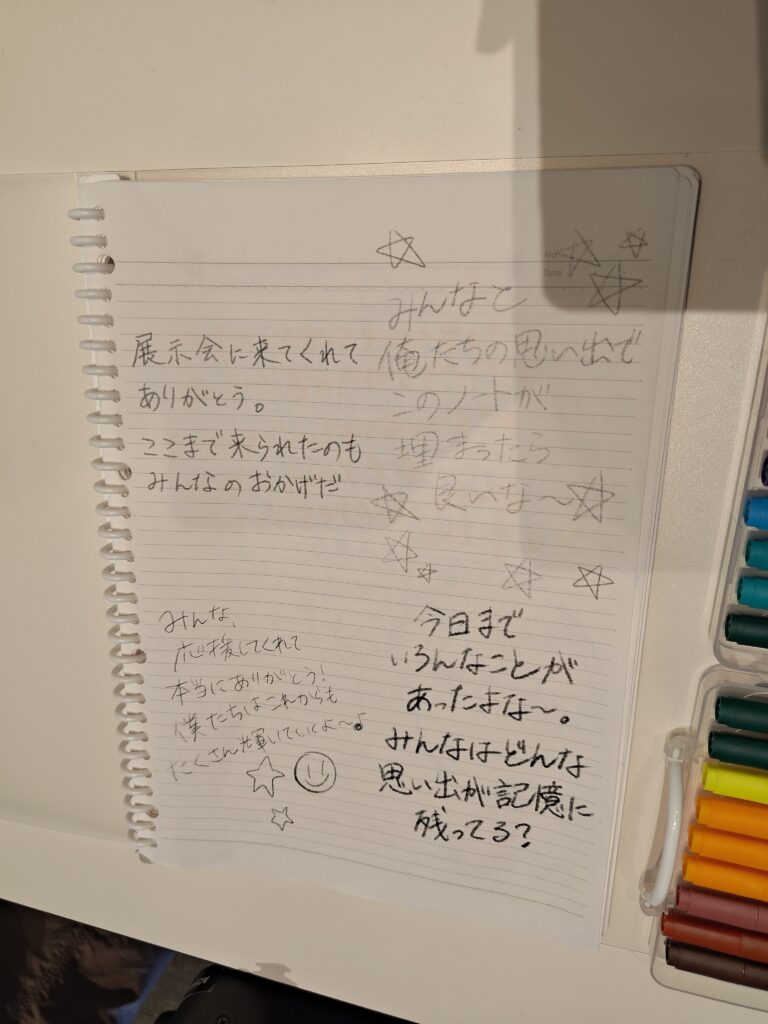 No.
Date
みんなと
俺たちの思い出で
このノートが
埋まったら
良いな〜
展示会に来てくれて
ありがとう。
ここまで来られたのも
みんなのおかげだ
みんな、
応援してくれて
本当にありがとう!
僕たちはこれからも
たくさん輝いていくよ〜♪
今日まで
いろんなことが
あったよな〜。
みんなはどんな
思い出が記憶に
残ってる?